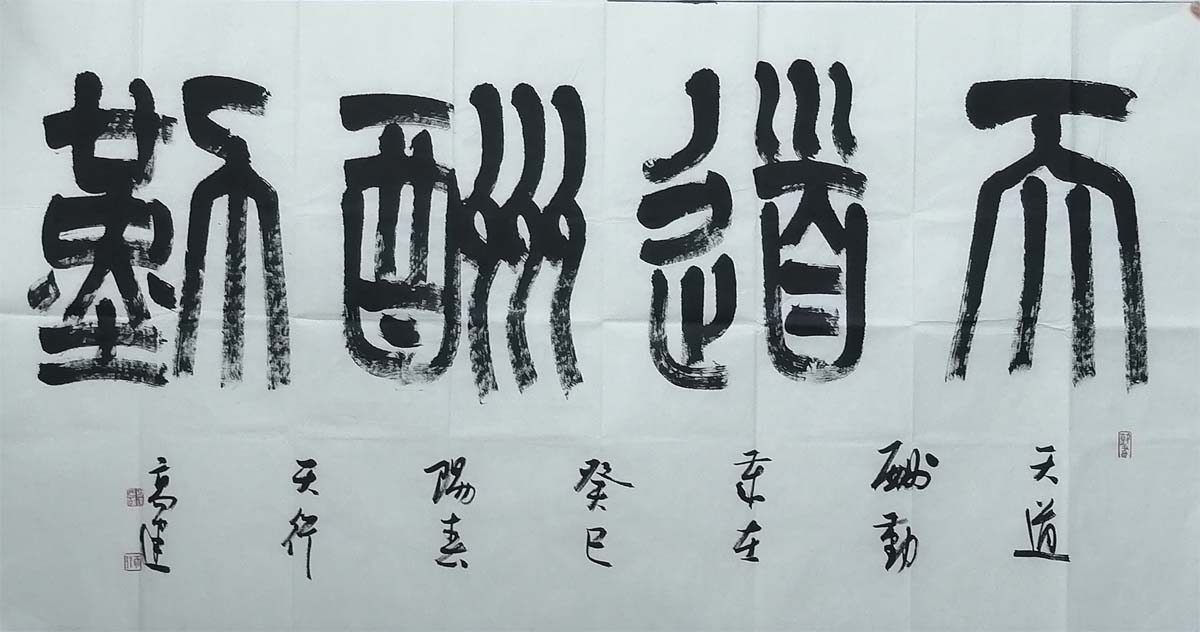 天道酬勤
天道
酬勤
歲在
癸巳
陽春
天行
高建